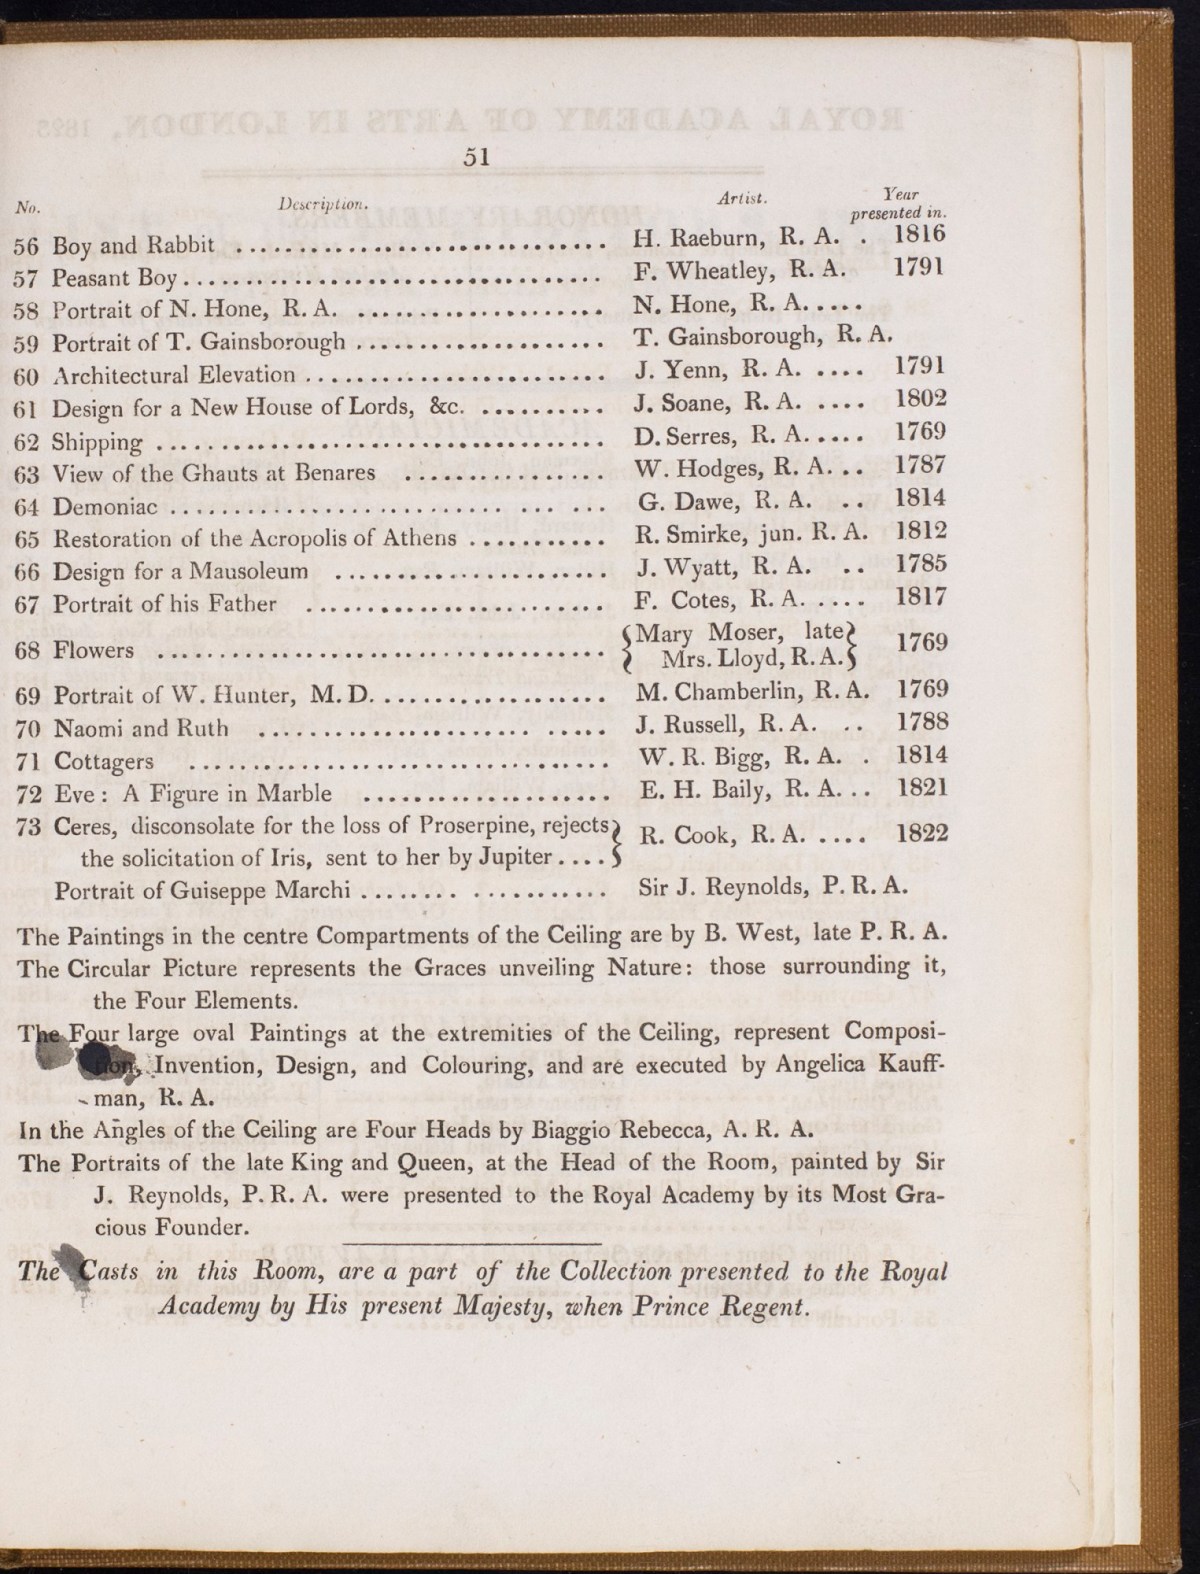 51
No. Description. Artist. Year presented in.
56 Boy and Rabbit .............................. H. Raeburn, R. A. . 1816
57 Peasant Boy.................................. F. Wheatley, R. A. 1791
58 Portrait of N. Hone, R. A. .................... N. Hone, R. A.....
59 Portrait of T. Gainsborough .................... T. Gainsborough, R. A.
60 Architectural Elevation ........................ J. Yenn, R. A. .... 1791
61 Design for a New House of Lords, &c. .......... J. Soane, R. A. .... 1802
62 Shipping .................................... D. Serres, R. A..... 1769
63 View of the Ghauts at Benares ................ W. Hodges, R. A. .. 1787
64 Demoniac .......................... ... ... G. Dawe, R. A. .. 1814
65 Restoration of the Acropolis of Athens ........... R. Smirke, jun. R. A. 1812
66 Design for a Mausoleum ...................... J. Wyatt, R. A. .. 1785
67 Portrait of his Father ........................ F. Cotes, R. A. .... 1817
68 Flowers .................................... {Mary Moser, late Mrs. Lloyd, R. A.} 1769
69 Portrait of W. Hunter, M. D. ................... M. Chamberlin, R. A. 1769
70 Naomi and Ruth ..................... ..... J. Russell, R. A. .. 1788
71 Cottagers .................................. W. R. Bigg, R. A. . 1814
72 Eve: A Figure in Marble .................... E. H. Baily, R. A. .. 1821
73 Ceres, disconsolate for the loss of Proserpine, rejects
the solicitation of Iris, sent to her by Jupiter ....} R. Cook, R. A. .... 1822
Portrait of Guiseppe Marchi ........ ........... Sir J. Reynolds, P. R. A.
The Paintings in the centre Compartments of the Ceiling are by B. West, late P. R. A.
The Circular Picture represents the Graces unveiling Nature: those surrounding it,
the Four Elements.
The Four large oval Paintings at the extremities of the Ceiling, represent Composi-
tion, Invention, Design, and Colouring, and are executed by Angelica Kauff-
man, R. A.
In the Angles of the Ceiling are Four Heads by Biaggio Rebecca, A. R. A.
The Portraits of the late King and Queen, at the Head of the Room, painted by Sir
J. Reynolds, P. R. A. were presented to the Royal Academy by its Most Gra-
cious Founder.
The Casts in this Room, are a part of the Collection presented to the Royal
Academy by His present Majesty, when Prince Regent.